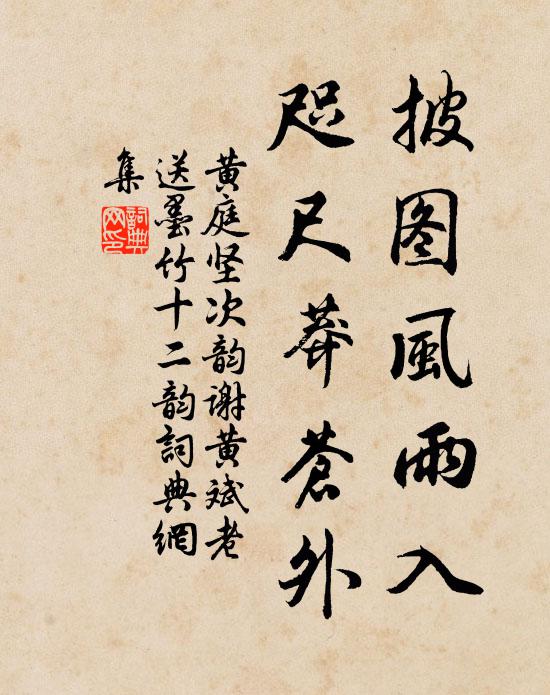 披图風雨入
咫尺莽蒼外
黄庭坚次韵谢黄斌老
送墨竹十二韵詞典網
集
詞典
网印